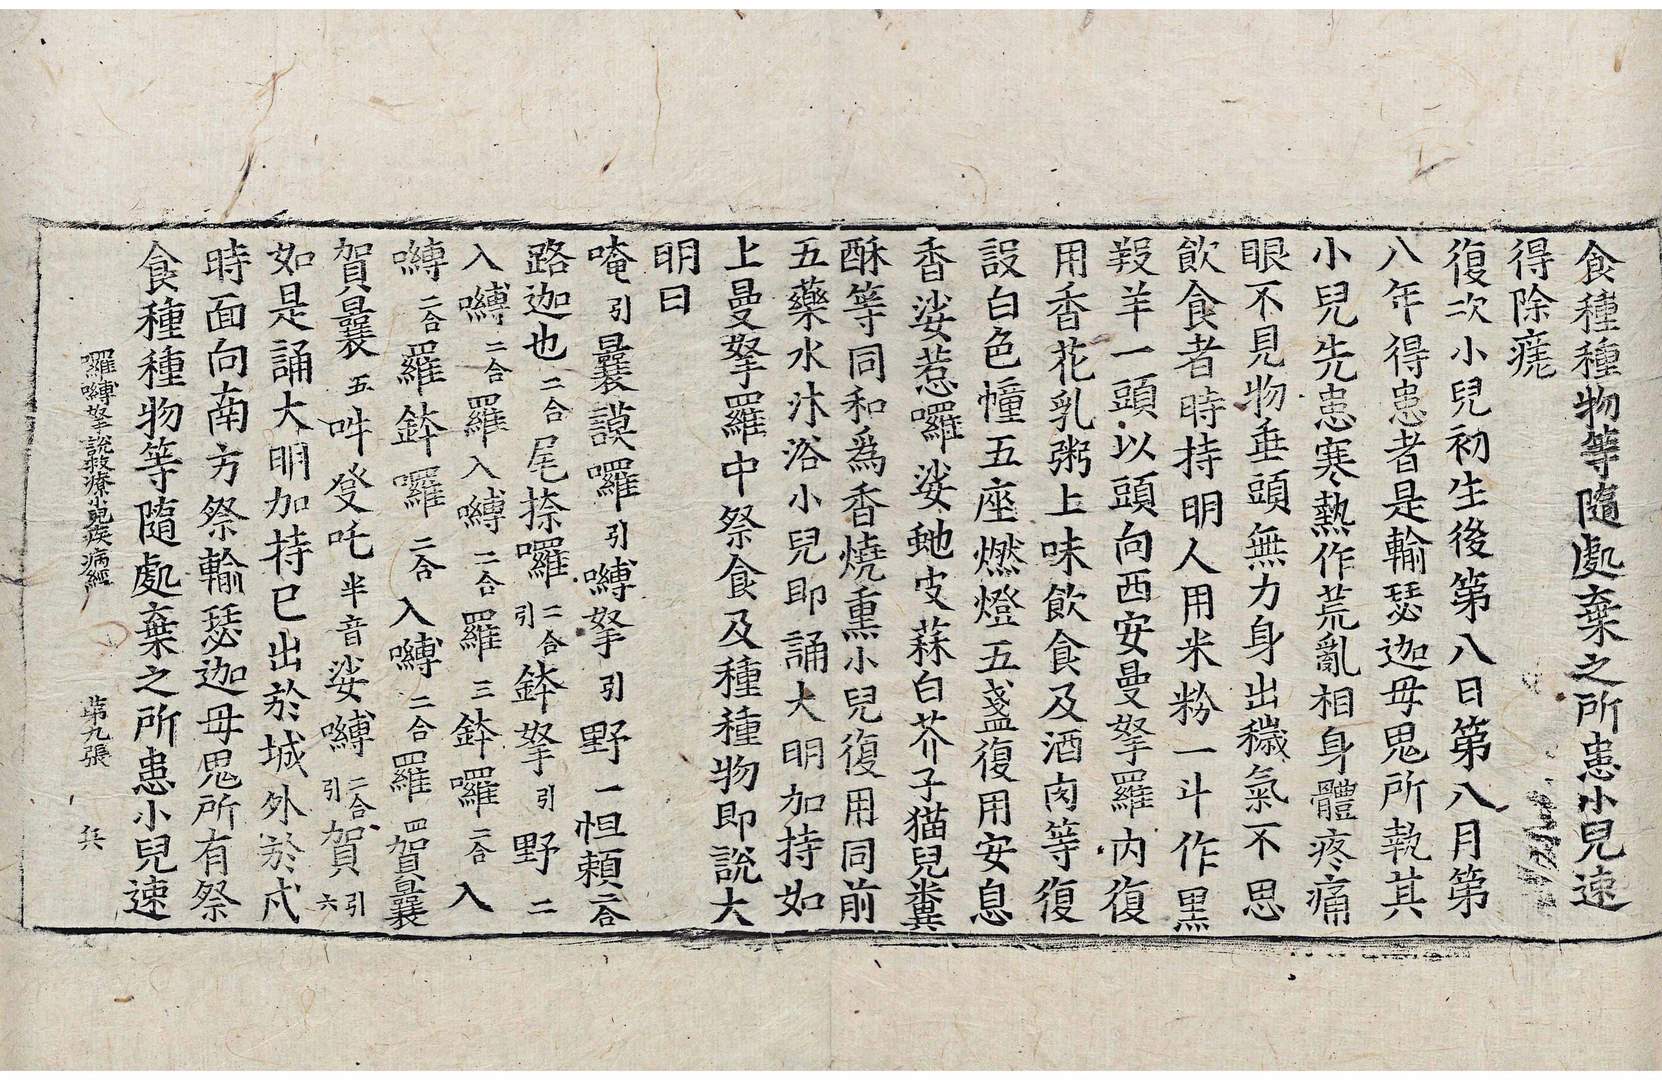 食種種物等隨處棄之所患小兒速
得除痊
復次小兒初生後第八日第八月第
八年得患者是輸瑟迦母鬼所執其
小兒先患寒熱作荒亂相身體疼痛
眼不見物垂頭無力身出穢氣不思
飲食者時持明人用米粉一斗作黑
羖羊一頭以頭向西安曼拏羅內復
用香花乳粥上味飲食及酒肉等復
設白色幢五座燃燈五盞復用安息
香娑惹囉娑虵皮蒜白芥子猫兒糞
酥等同和為香燒熏小兒復用同前
五藥水沐浴小兒即誦大明加持如
上曼拏羅中祭食及種種物即說大
明曰
唵引曩謨囉引嚩拏引野一怛賴二合
路迦也二合尾捺囉二合引鉢拏引野二
入嚩二合羅入嚩二合羅三鉢囉二合入
嚩二合羅鉢囉二合入嚩二合羅四賀曩
賀曩五吽發吒半音娑嚩二合引賀引六
如是誦大明加持已出於城外於戌
時面向南方祭輸瑟迦母鬼所有祭
食種種物等隨處棄之所患小兒速
囉嚩拏說救療小兒疾病經 第九張 兵